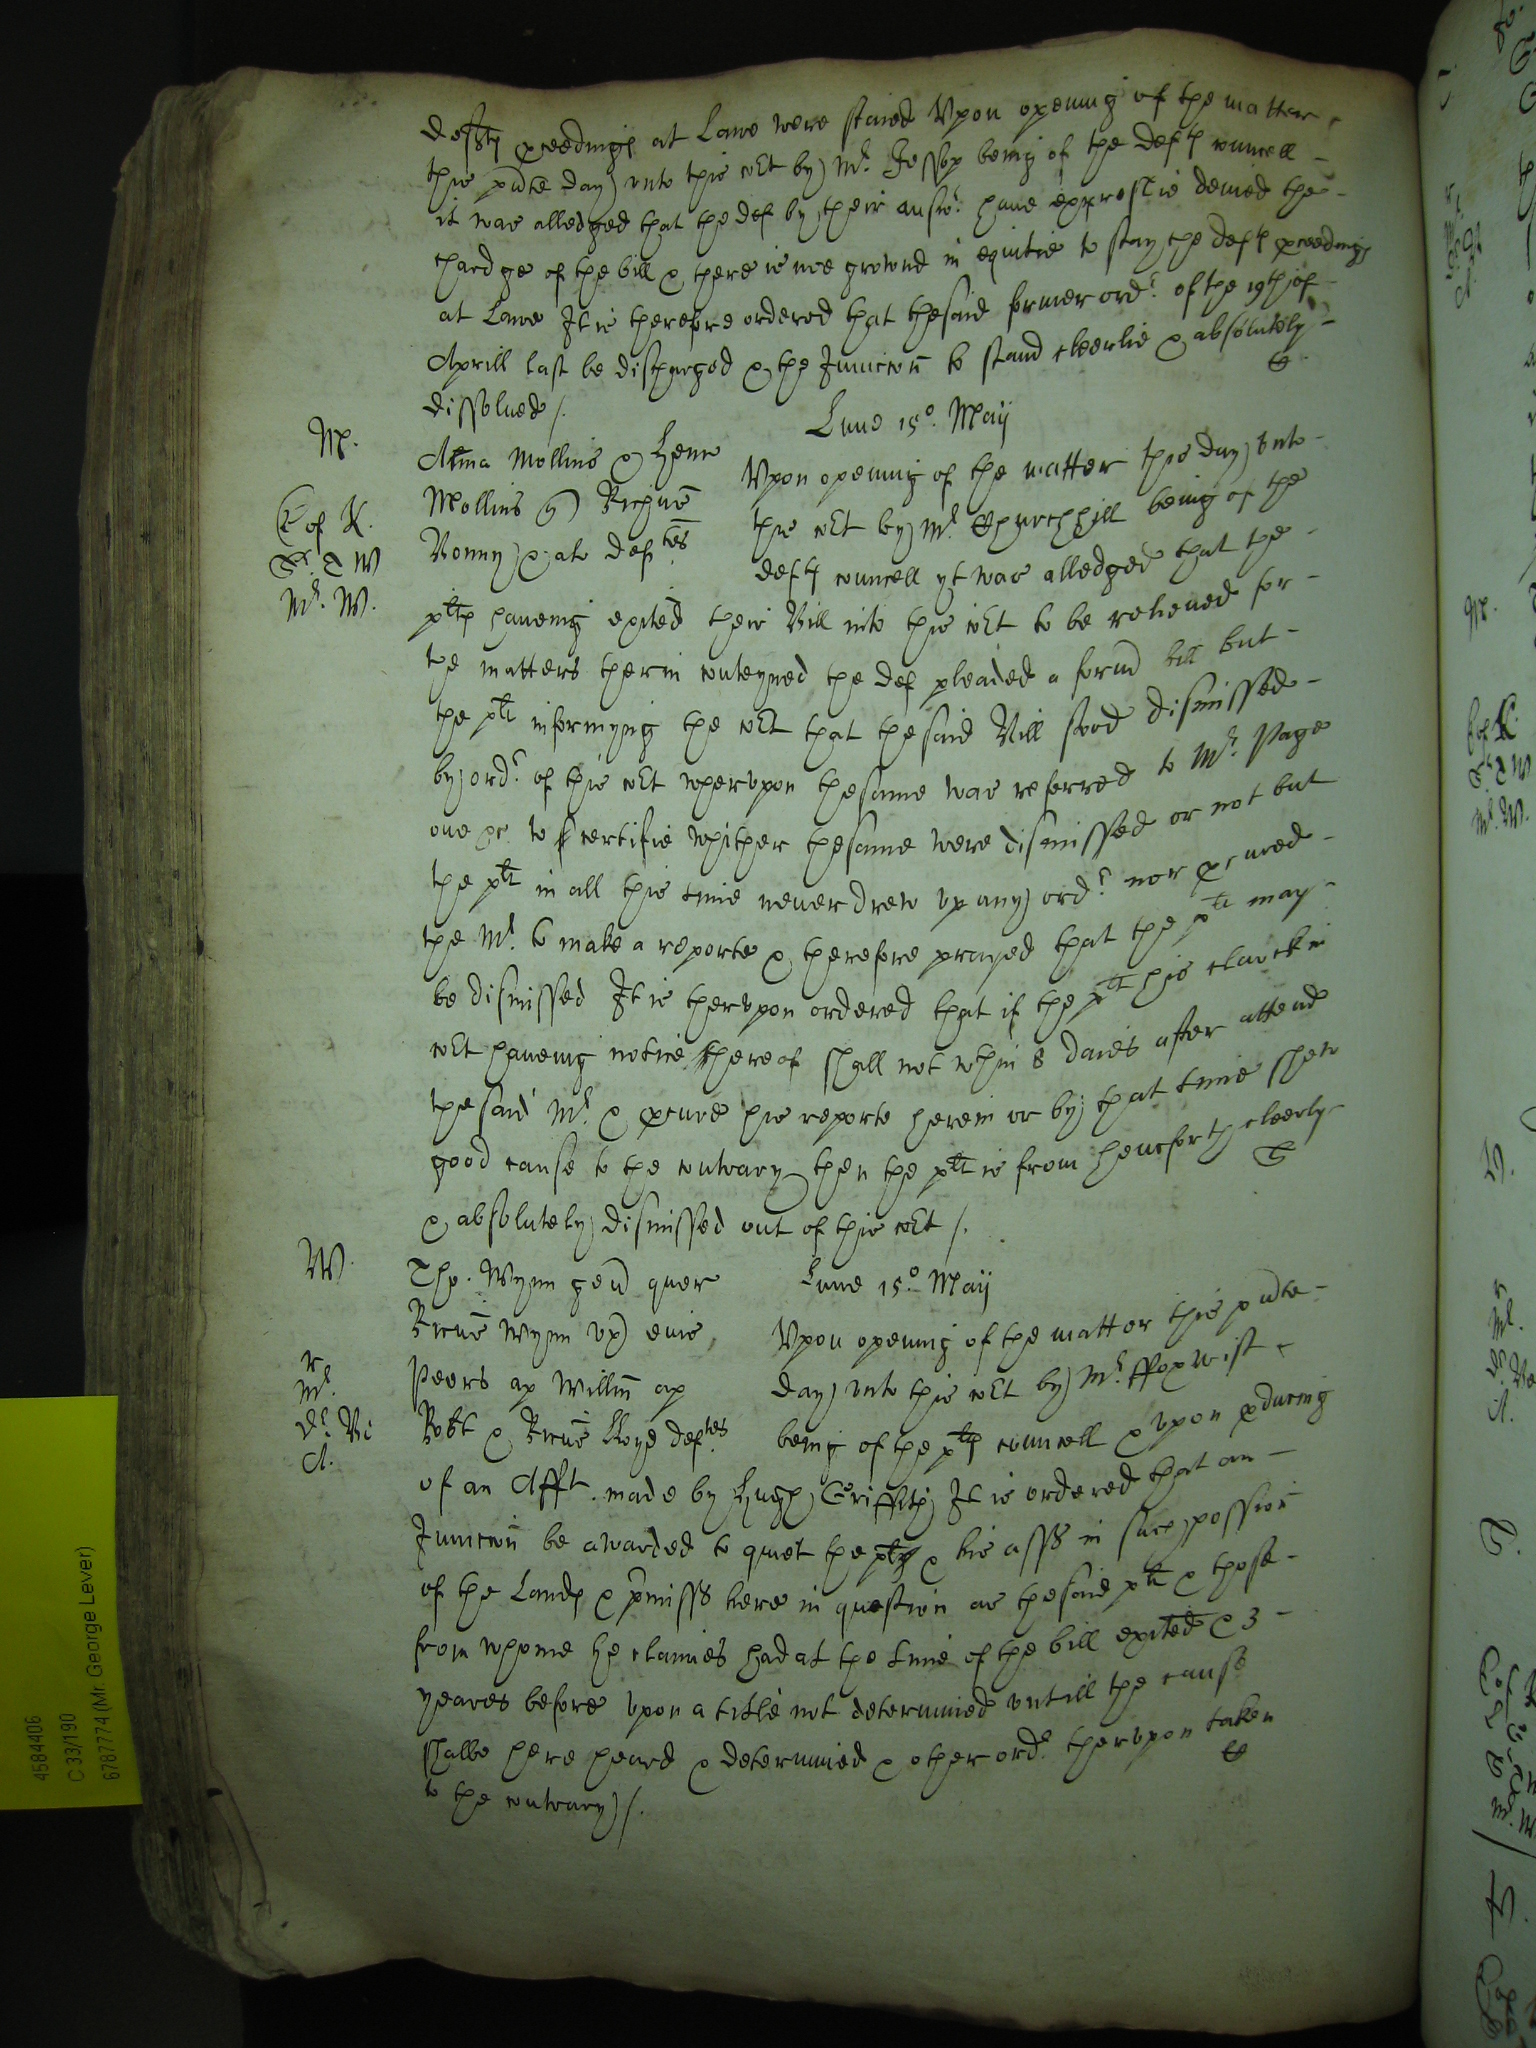 deftes pceedings at Lawe were staied Upon opening of the matter
this pnte day unto this Cot by Mr. Jessop being of the deftes councell
it was alledged that the def by their answr. have expreslie denied the
chardge of the bill & there is noe grownd in equitie to stay the deftes pceedings
at Lawe It is therefore ordered that the said former ordr. of the 19th of
Aprill last be discharged & the Iniunccon to stand cleerlie & absolutely
dissolved /.
M.
Lune 15o. May
Anna Mollins & Henr
Mollins Richus
Bonny & al deftes
E of K.
Sr. E W
Mr. W.
Upon opening of the matter this day unto
this Cot by Mr. Churchhill being of the
deftes councell yt was alledged that the
pltes haveing exited their Bill into this Cot to be releived for
the matters therin conteyned the def pleaded a form bill but
the plt informyng the Cot that the said Bill stood dismissed
by ordr. of this Cot wherupon the same was referred to Mr. Page
one &c to certifie whither the same were dismissed or not but
the plt in all this time never drew up any ordr. nor pcured
the Mr. to make a reporte & therefore prayed that the plt may
be dismissed It is therupon ordered that if the plt his clarck in
Cot haveing notice thereof shall not wthin 8 daies after attend
the said Mr. & pcure his reporte herein or by that time shew
good cause to the contrary then the plt is from henceforth cleerly
& absolutely dismissed out of this Cot /.
W.
Tho. Wynn gen quer
Lune 15o. May
Ricus Wynn ux eius
Peers ap Willm ap
Robt & Ricus Lloyd deftes
r
Mr.
Dr. Be
A.
Upon opening of the matter this pnte
day unto this Cot by Mr. ffoxwist
being of the pltes councell & upon pducing
of an Afft. made by Hugh Griffith It is ordered that an
Iniunccon be awarded to quiet the plt & his asss in such possion
of the Landes & pmisss here in question as the said plt & those
from whome he claimes had at the time of the bill exited & 3
yeares before upon a title not determined untill the cause
shalbe here heard & determined & other ordr. therupon taken
to the contrary /.
4584406
C 33/190
6787774 (Mr. George Lever)